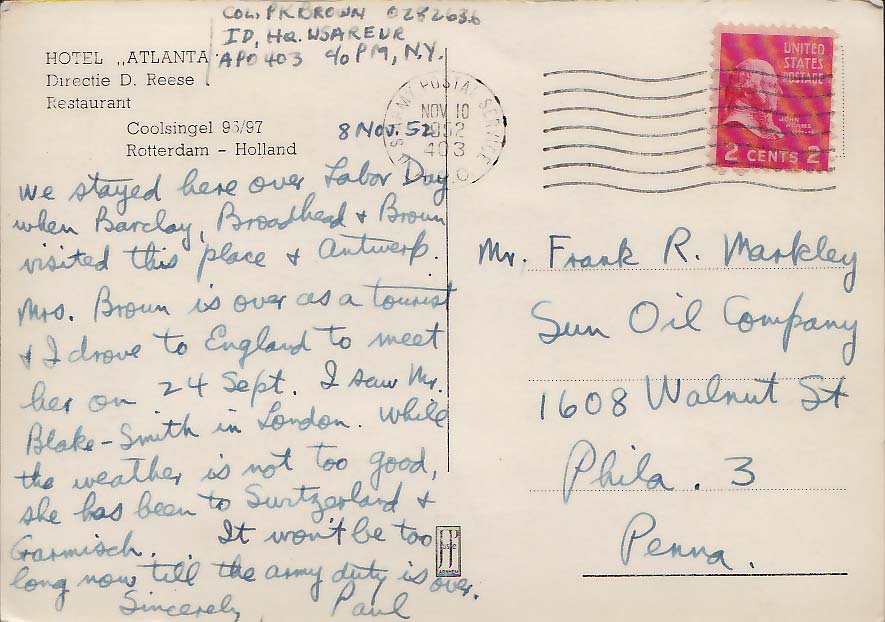 COL. P.R. BROWN 0282636
ID, HQ. USAREUR
APO 403 c/o PM, N.Y.
HOTEL „ATLANTA"
Directie D. Reese
Restaurant
Coolsingel 95/97
Rotterdam - Holland
8 Nov. 52
We stayed here over Labor Day
when Barclay, Broadhead & Brown
visited this place & Antwerp.
Mrs. Brown is over as a tourist
& I drove to England to meet
her on 24 Sept. I saw Mr.
Blake-Smith in London. While
the weather is not too good,
she has been to Switzerland &
Garmisch. It won't be too
long now till the army duty is over.
Sincerely Paul
ARMY POSTAL SERVICE
NOV 10
1952
403
UNITED
STATES
POSTAGE
JOHN
ADAMS
2 CENTS 2
Mr. Frank R. Markley
Sun Oil Company
1608 Walnut St
Phila. 3
Penna.